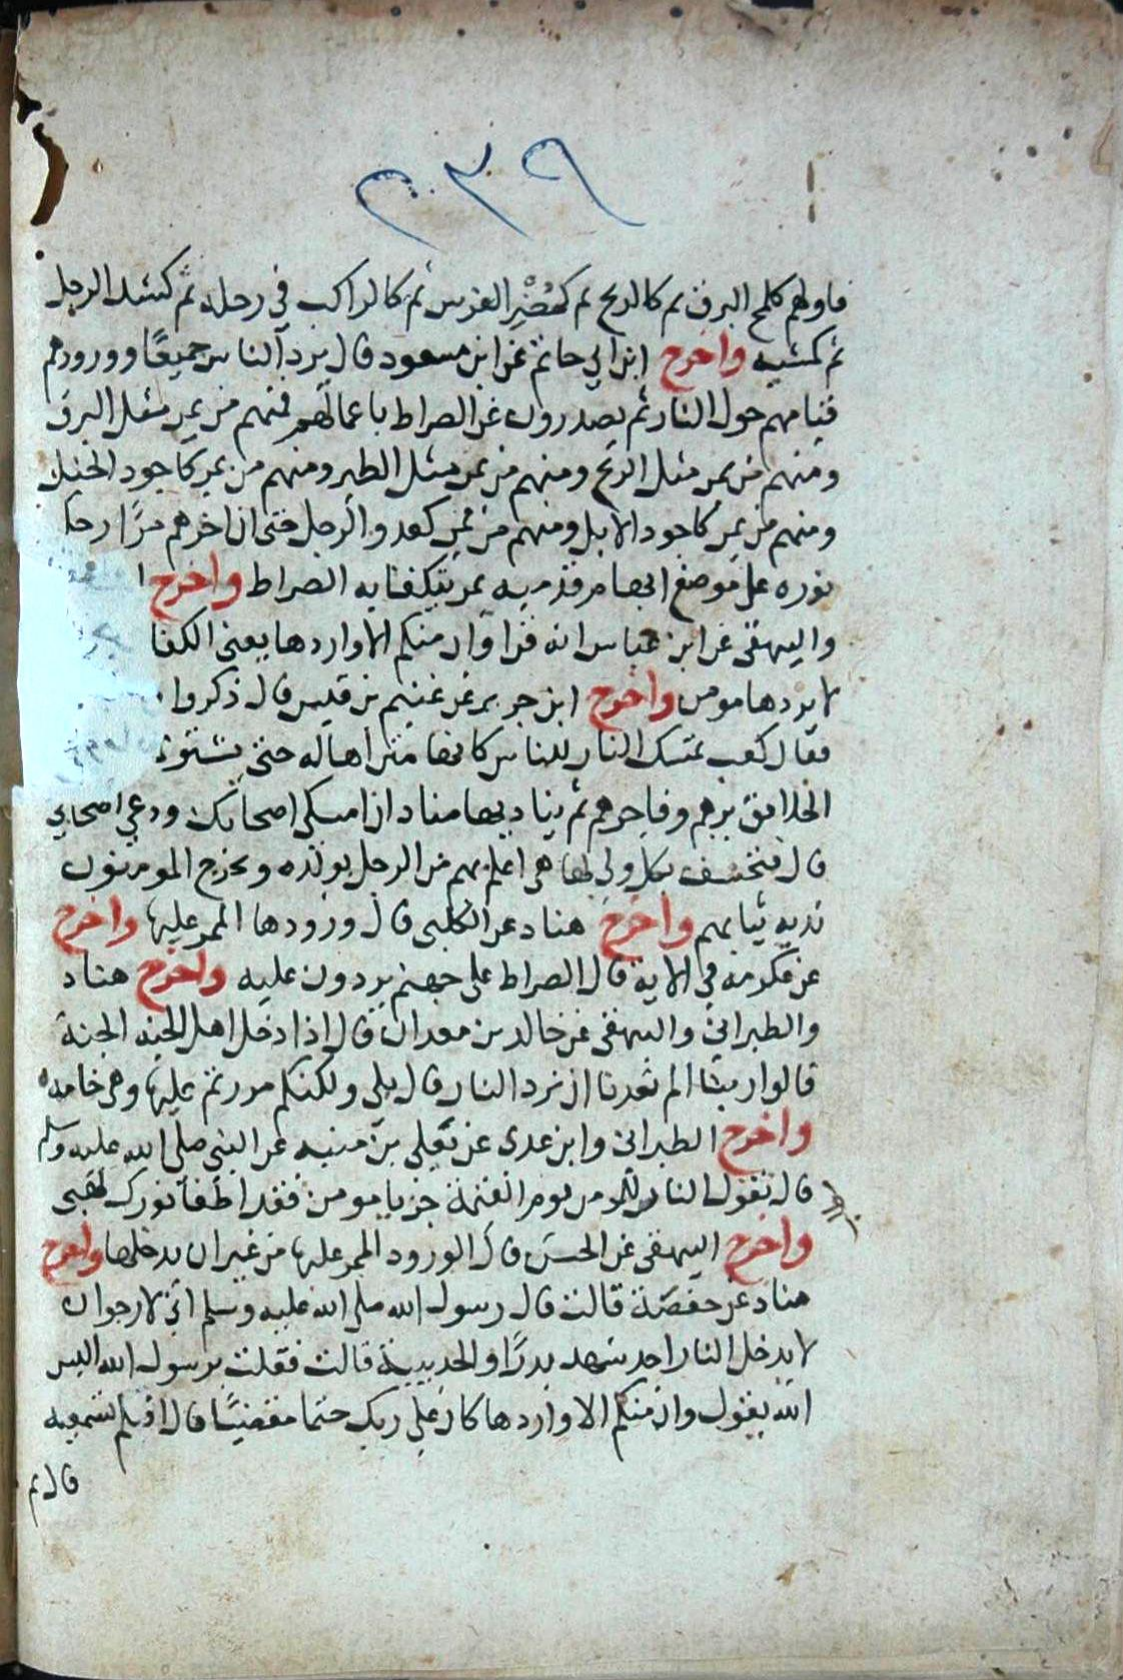 ٢٣٩
فاولهم كلمح البرق ثم كالريح ثم كحُضْرِ الفرس ثم كالراكب في رحله ثم كشد الرجل
ثم كمشيه واخرج ابن ابي حاتم عن ابن مسعود قال يرد الناس جميعًا وورودهم
قيامهم حول النار ثم يصدرون عن الصراط باعمالهم فمنهم من يمر مثل البرق
ومنهم من يمر مثل الريح ومنهم من يمر مثل الطير ومنهم من يمر كاجود الخيل
ومنهم من يمر كاجود الابل ومنهم من يمر كعدو الرجل حتى ان اخرهم مرًا رجل
نوره على موضع ابهام قدميه يمر يتكفا به الصراط واخرج
والبيهقي عن ابن عباس انه قرا وان منكم الا واردها يعني الكفا
لا يردها مومن واخرج ابن جرير عن غنيم بن قيس قال ذكروا
فقال كعب تمسك النار للناس كانها متن اهاله حتى يستوي
الخلائق برهم وفاجرهم ثم يناديها مناد ان امسكي اصحابك ودعي اصحابي
قال فتخسف بكل ولي لها هي اعلم بهم من الرجل بولده ويخرج المومنون
نديه ثيابهم واخرج هناد عن الكلبي قال ورودها الممر عليها واخرج
عن عكرمة في الاية قال الصراط على جهنم يردون عليه واخرج هناد
والطبراني والبيهقي عن خالد بن معدان قال اذا دخل اهل الجنه الجنة
قالوا ربنا الم تعدنا ان نرد النار قال بلى ولكنكم مررتم عليها وهي خامده
واخرج الطبراني وابن عدي عن يعلى بن منيه عن النبي صلى الله عليه وسلم
قال تقول النار للمومن يوم القيمة جز يا مومن فقد اطفأ نورك لهبي
واخرج البيهقي عن الحسن قال الورود الممر عليها من غير ان يدخلها واخرج
هناد عن حفصة قالت قال رسول الله صلى الله عليه وسلم اني لارجو ان
لا يدخل النار احد شهد بدرًا والحديبية قالت فقلت يرسول الله اليس
الله يقول وان منكم الا واردها كان على ربك حتما مقضيًا قال افلم تسمعيه
قال ثم